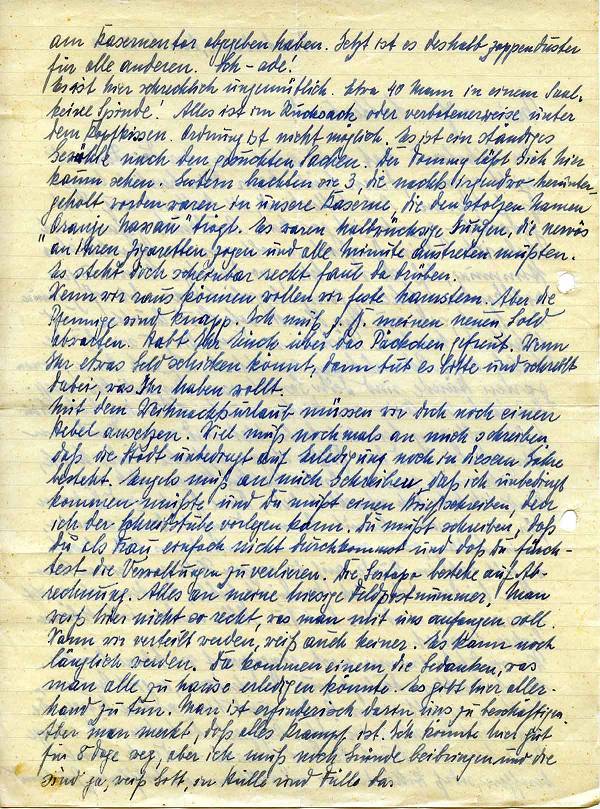 am Kasernentor abgegeben haben. Jetzt ist es deshalb zappenduster
für alle anderen. Ich - ade!
Es ist hier schrecklich ungemütlich. Etwa 40 Mann in einem Saal -
keine Spinde! Alles ist im Rucksack oder verbotenerweise unter
dem Kopfkissen. Ordnung ist nicht möglich. Es ist ein ständiges
Gewühle nach den gesuchten Sachen. Der Tommy läßt sich hier
kaum sehen. Gestern brachten sie 3, die nachts irgendwo herunter-
geholt worden waren in unsere Kaserne, die den stolzen Namen
"Oranje Nassau" trägt. Es waren halbwüchsige Jungen, die nervös
an ihren Zigaretten zogen und alle Minute austreten mußten.
Es steht doch scheinbar recht faul da drüben.
Wenn wir raus können wollen wir feste hamstern. Aber die
Pfennige sind knapp. Ich muß z. Z. meinen neuen Sold
abwarten. Habt Ihr Euch über das Päckchen gefreut. Wenn
Ihr etwas Geld schicken könnt, dann tut es bitte und schreibt
dabei, was Ihr haben wollt.
Mit dem Weihnachtsurlaub müssen wir doch noch einen
Hebel ansetzen. Viel muß nochmals an mich schreiben,
daß die Stadt unbedingt auf Erledigung noch in diesem Jahre
besteht. Engels muß an mich schreiben, daß ich unbedingt
kommen müßte und Du mußt einen Brief schreiben, den
ich der Schreibstube vorlegen kann. Du mußt schreiben, daß
Du als Frau einfach nicht durchkommst und daß Du fürch-
test die Verwaltungen zu verlieren. Die Gestapo bestehe auf Ab-
rechnung. Alles an meine hiesige Feldpostnummer. Man
weiß hier nicht so recht, was man mit uns anfangen soll.
Wann wir verteilt werden, weiß auch keiner. Es kann noch
länglich werden. Da kommen einem die Gedanken, was
man alle zu hause erledigen könnte. Es gibt hier aller-
hand zu tun. Man ist erfinderisch darin uns zu beschäftigen.
Aber man merkt, daß alles Krampf ist. Ich könnte hier gut
für 8 Tage weg, aber ich muß noch Gründe beibringen und die
sind ja, weiß Gott, in Hülle und Fülle da